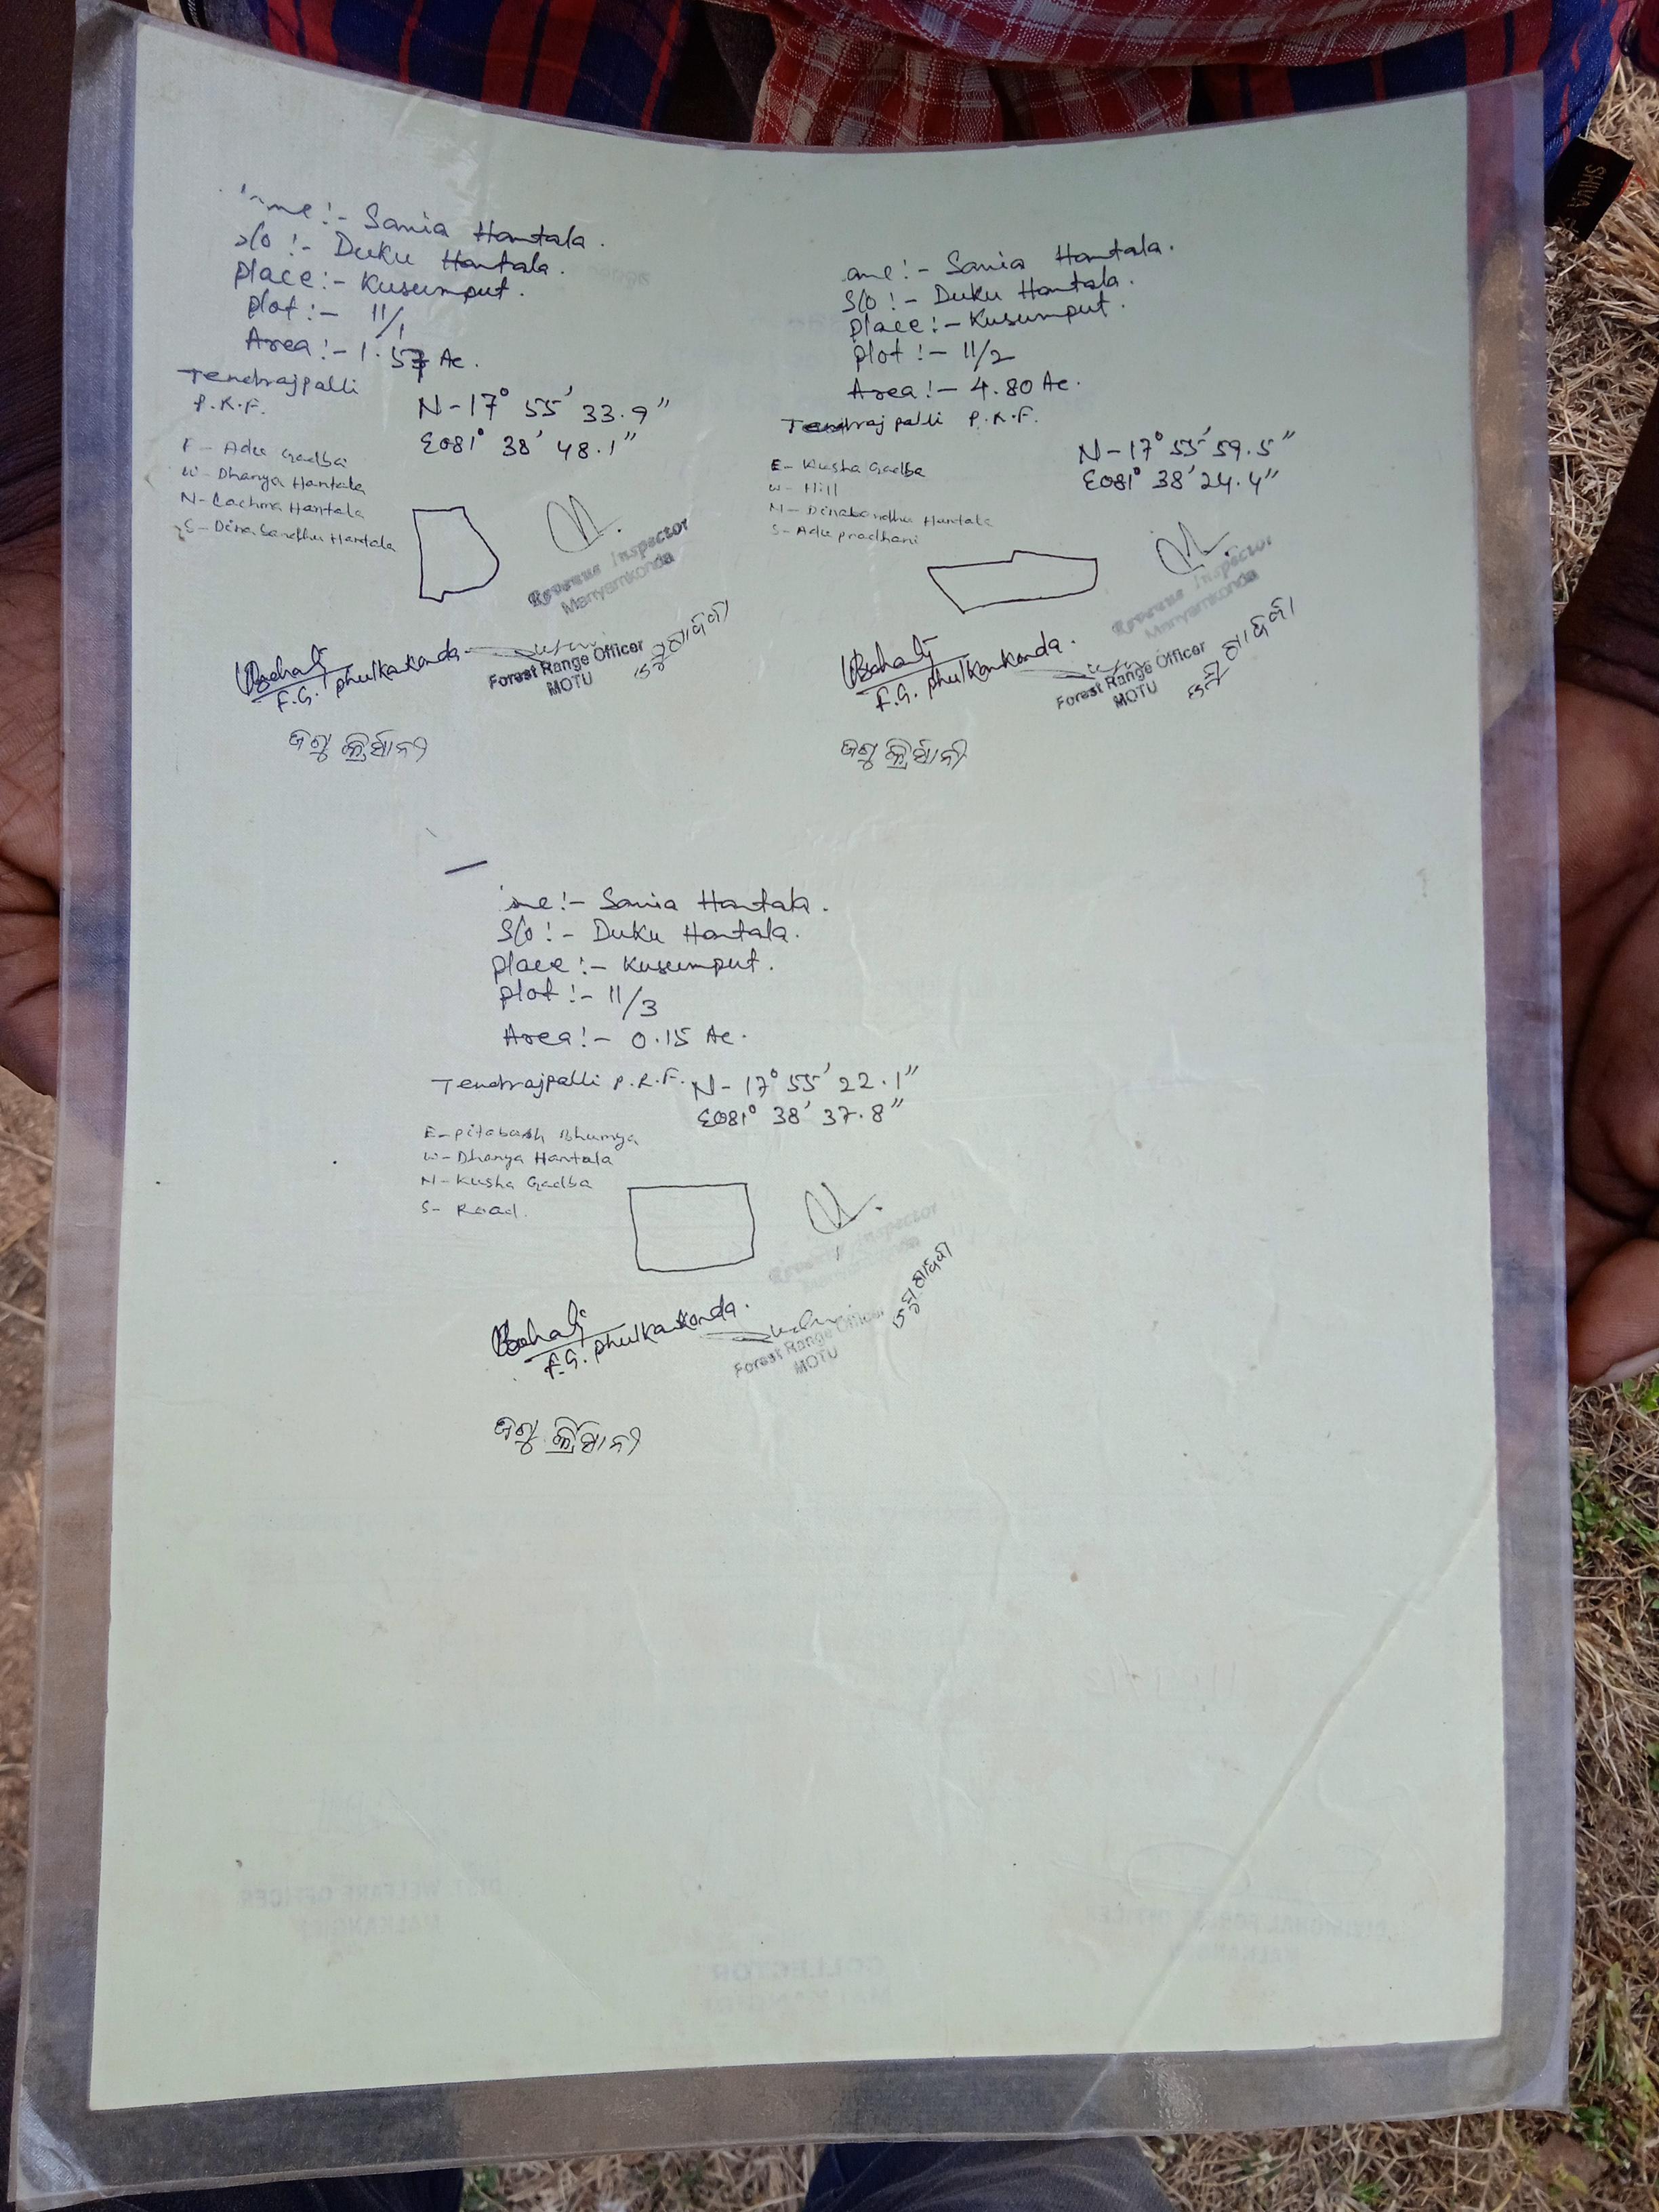 ame:- Sania Hantala.
S/o:- Duku Hantala.
Place:- Kusumput.
Plot:- 11/1
Area:- 1.57 Ac.
Tendrajpalli
P.R.F.
N-17° 55' 33.9"
E081° 38' 48.1"
E- Adu Gadba
W- Dhanya Hantala
N- Lachma Hantala
S- Dinabandhu Hantala
Revenue Inspector
Manyamkonda
F.G. Phulkankonda
Forest Range Officer
MOTU
ame:- Sania Hantala.
S/o:- Duku Hantala.
Place:- Kusumput.
Plot:- 11/2
Area:- 4.80 Ac.
Tendrajpalli P.R.F.
N-17° 55' 59.5"
E081° 38' 24.4"
E- Kusha Gadba
W- Hill
N- Dinabandhu Hantala
S- Adu pradhani
Revenue Inspector
Manyamkonda
F.G. Phulkankonda.
Forest Range Officer
MOTU
me:- Sania Hantala.
S/o:- Duku Hantala.
Place:- Kusumput.
Plot:- 11/3
Area:- 0.15 Ac.
Tendrajpalli P.R.F.
N-17° 55' 22.1"
E081° 38' 37.8"
E- Pitabash Bhumya
W- Dhanya Hantala
N- Kusha Gadba
S- Road.
Revenue Inspector
F.G. Phulkankonda.
Forest Range Officer
MOTU
DIST. WELFARE OFFICER
MALKANGIRI
COLLECTOR
MALKANGIRI
DIVISIONAL FOREST OFFICER
SHIVA